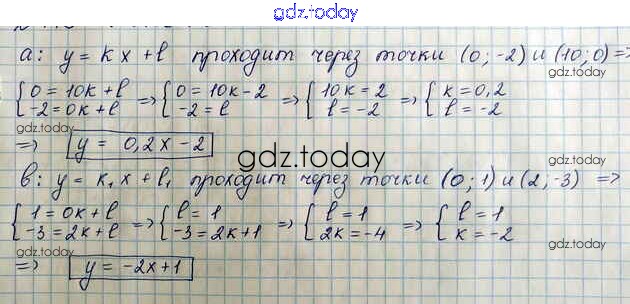 gdz.today
а: y = kx + l проходит через точки (0; -2) и (10; 0) =>
{0 = 10k + l
-2 = 0k + l => {0 = 10k - 2
-2 = l => {10k = 2
l = -2 => {k = 0,2
l = -2
gdz.today
=> y = 0,2x - 2
gdz.today
в: y = k₁x + l₁ проходит через точки (0; 1) и (2; -3) =>
{1 = 0k + l
-3 = 2k + l => {l = 1
-3 = 2k + 1 => {l = 1
2k = -4 => {l = 1
k = -2
gdz.today
=> y = -2x + 1
gdz.today